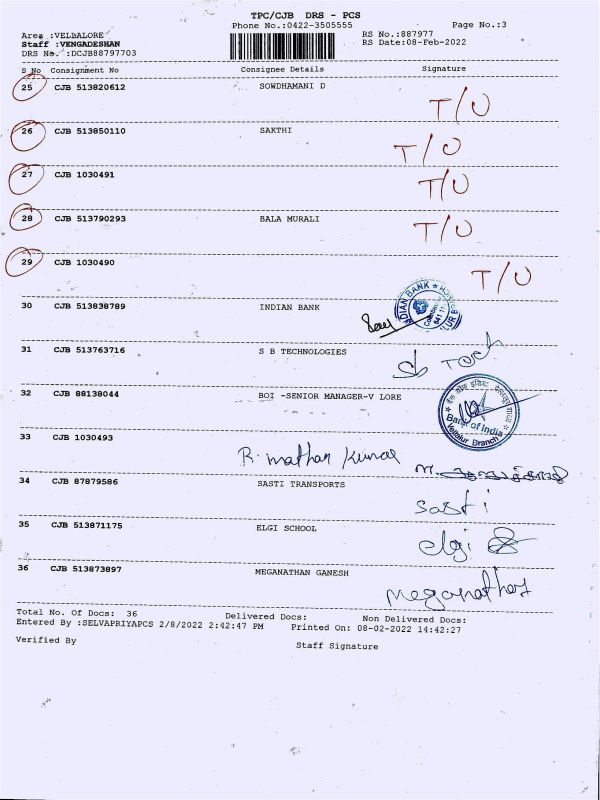 TPC/CJB DRS - PCS
Phone No.:0422-3505555
Page No.:3
Area :VELBALORE
RS No.:887977
Staff :VENGADESHAN
RS Date:08-Feb-2022
DRS No. :DCJB88797703
S No Consignment No Consignee Details Signature
25 CJB 513820612 SOWDHAMANI D
T/U
26 CJB 513850110 SAKTHI
T/U
27 CJB 1030491
T/U
28 CJB 513790293 BALA MURALI
T/U
29 CJB 1030490
T/U
30 CJB 513838789 INDIAN BANK
INDIAN BANK
31 CJB 513763716 S B TECHNOLOGIES
Sb Tech
32 CJB 88138044 BOI -SENIOR MANAGER-V LORE
Bank of India
Vellalur Branch
33 CJB 1030493
R. mathan kumar
34 CJB 87879586 SASTI TRANSPORTS
sasti
35 CJB 513871175 ELGI SCHOOL
elgi
36 CJB 513873897 MEGANATHAN GANESH
meganathan
Total No. Of Docs: 36 Delivered Docs: Non Delivered Docs:
Entered By :SELVAPRIYAPCS 2/8/2022 2:42:47 PM Printed On: 08-02-2022 14:42:27
Verified By
Staff Signature